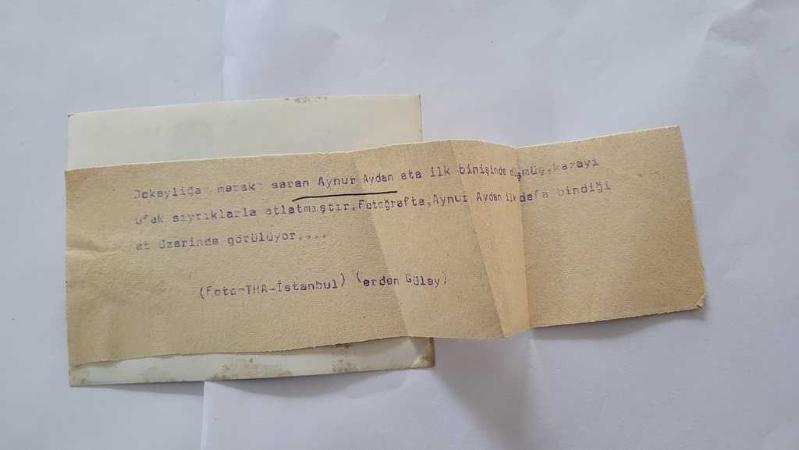 Jokeyliğe merak saran Aynur Aydan ata ilk binişinde düşmüş,kazayı
ufak sıyrıklarla atlatmıştır.Fotoğrafta,Aynur Aydan ilk defa bindiği
at üzerinde görülüyor....
(Foto-THA-İstanbul) (erden Gülay)